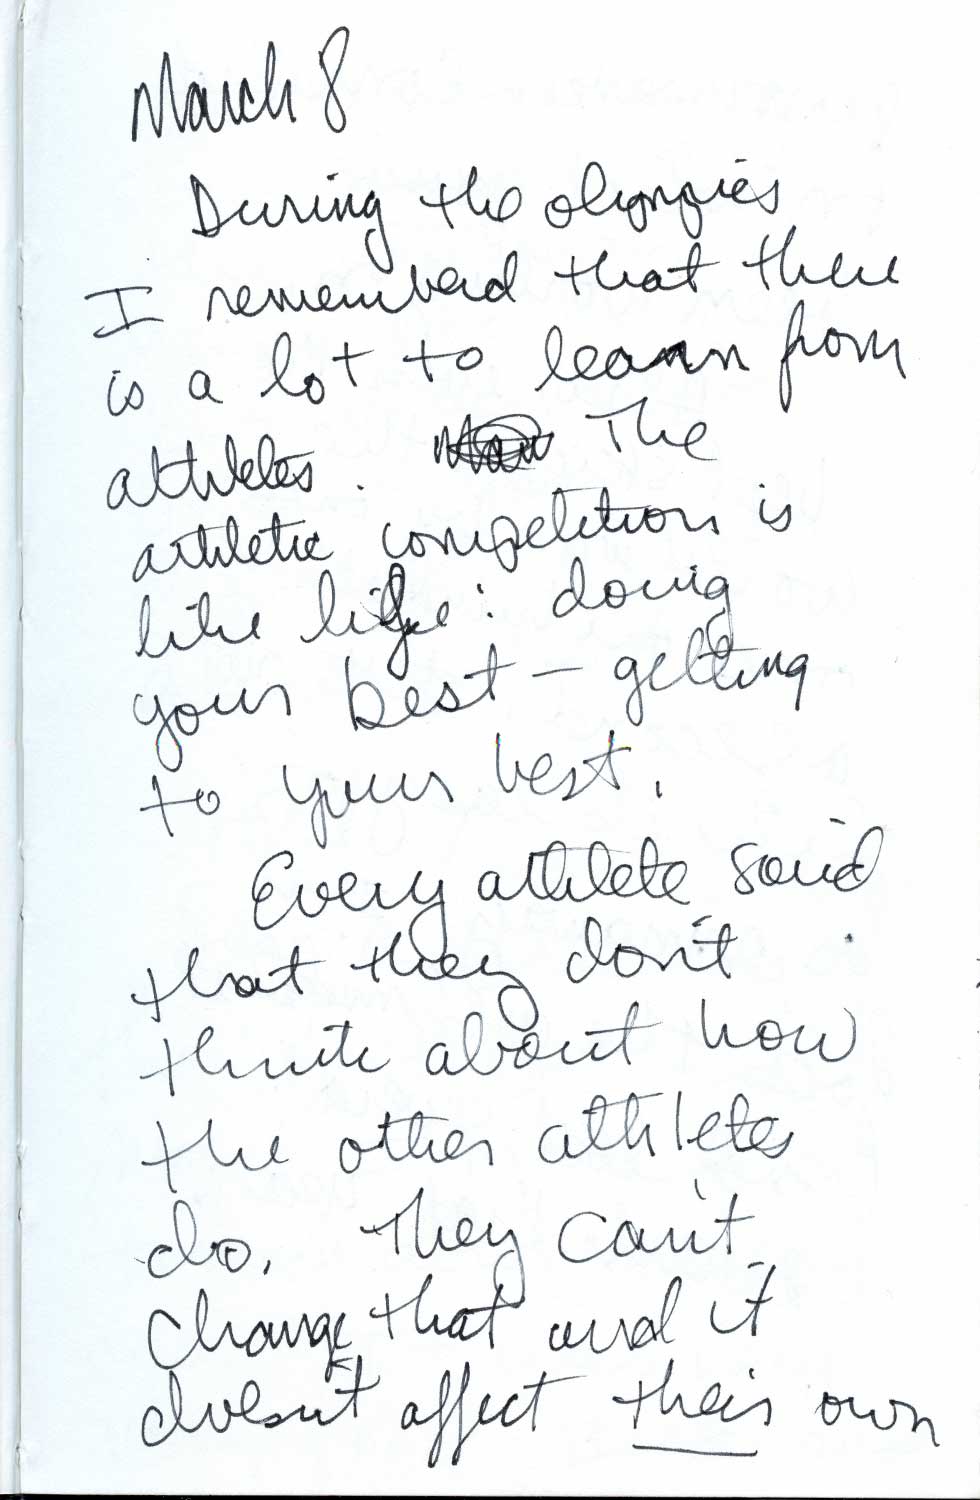 March 8
During the olympics
I remembered that there
is a lot to learn from
athletes. The
athletic competition is
like life: doing
your best – getting
to your best.
Every athlete said
that they don't
think about how
the other athletes
do. They can't
change that and it
doesn't affect their own